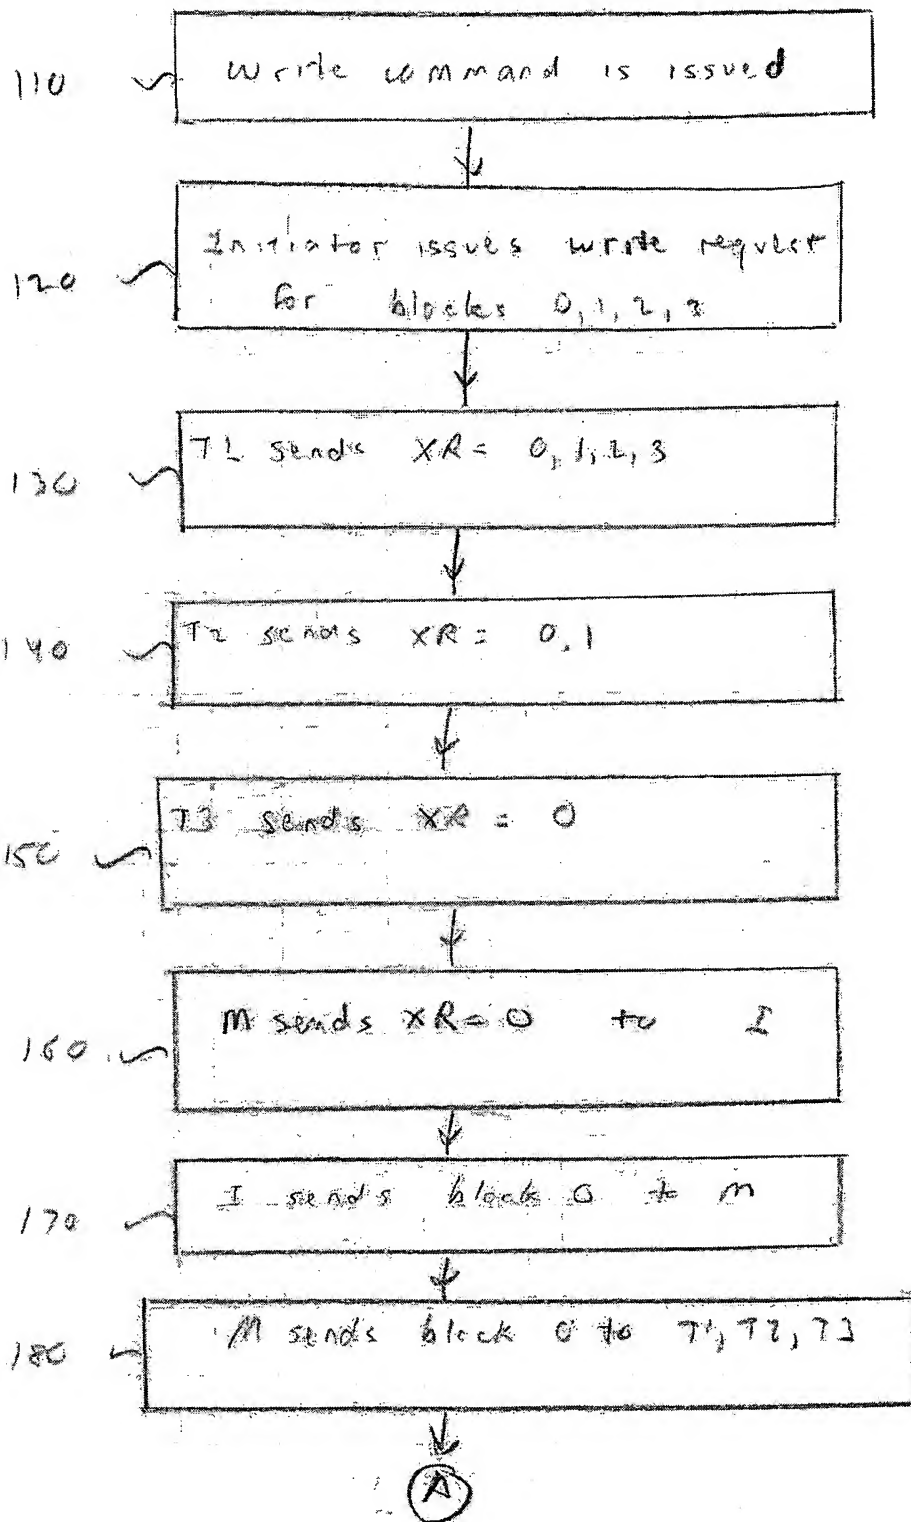 110 Write command is issued
120 Initiator issues write request
for blocks 0, 1, 2, 3
130 T1 sends XR = 0, 1, 2, 3
140 T2 sends XR = 0, 1
150 T3 sends XR = 0
160 M sends XR = 0 to I
170 I sends block 0 to M
180 M sends block 0 to T1, T2, T3
A